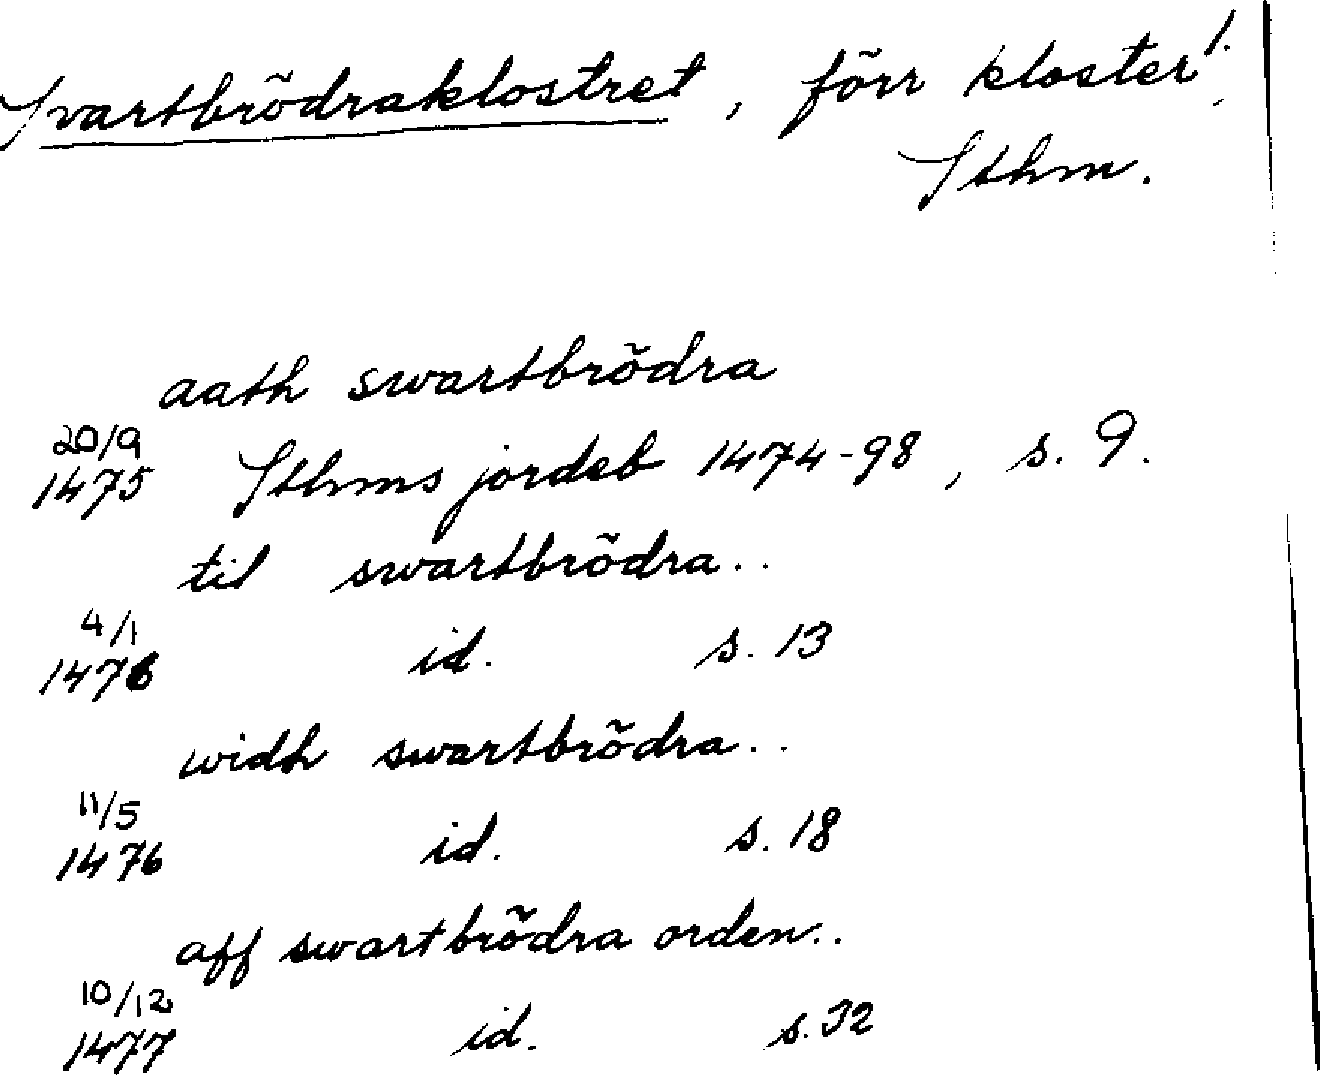 Svartbrödraklostret, förr kloster, 1.
Sthm.
aath swartbrödra
20/9
1475 Sthms jordeb 1474-98, s. 9.
til swartbrödra..
4/1
1476 id. s. 13
widh swartbrödra..
11/5
1476 id. s. 18
aff swartbrödra orden..
10/12
1477 id. s. 32